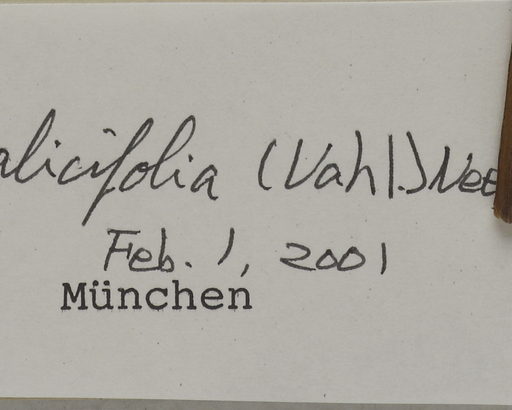 alicifolia (Vahl.) Nee
Feb. 1, 2001
München